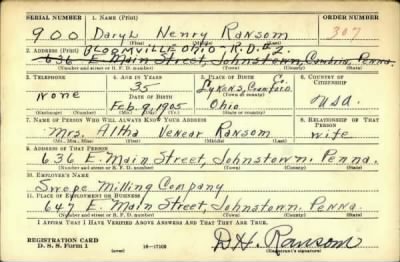 SERIAL NUMBER 1. NAME (Print) ORDER NUMBER
900 Daryl Henry Ransom 307
(First) (Middle) (Last)
2. ADDRESS (Print) BLOOMVILLE OHIO, R.D. #2.
636 E. Main Street, Johnstown, Cambria, Penna.
(Number and street or R. F. D. number) (Town) (County) (State)
3. TELEPHONE 4. AGE IN YEARS 5. PLACE OF BIRTH 6. COUNTRY OF CITIZENSHIP
None 35 Lykens, Crawford Co.
DATE OF BIRTH (Town or county)
Feb. 9, 1905 Ohio USA
(Exchange) (Number) (Mo.) (Day) (Yr.) (State or country)
7. NAME OF PERSON WHO WILL ALWAYS KNOW YOUR ADDRESS 8. RELATIONSHIP OF THAT PERSON
Mrs. Altha Venear Ransom wife
(Mr., Mrs., Miss) (First) (Middle) (Last)
9. ADDRESS OF THAT PERSON
636 E. Main Street, Johnstown, Penna.
(Number and street or R. F. D. number) (Town) (County) (State)
10. EMPLOYER'S NAME
Swope Milling Company
11. PLACE OF EMPLOYMENT OR BUSINESS
647 E. Main Street, Johnstown, Penna.
(Number and street or R. F. D. number) (Town) (County) (State)
I AFFIRM THAT I HAVE VERIFIED ABOVE ANSWERS AND THAT THEY ARE TRUE.
REGISTRATION CARD
D. S. S. Form 1 (over) 16—17105 D.H. Ransom
(Registrant's signature)